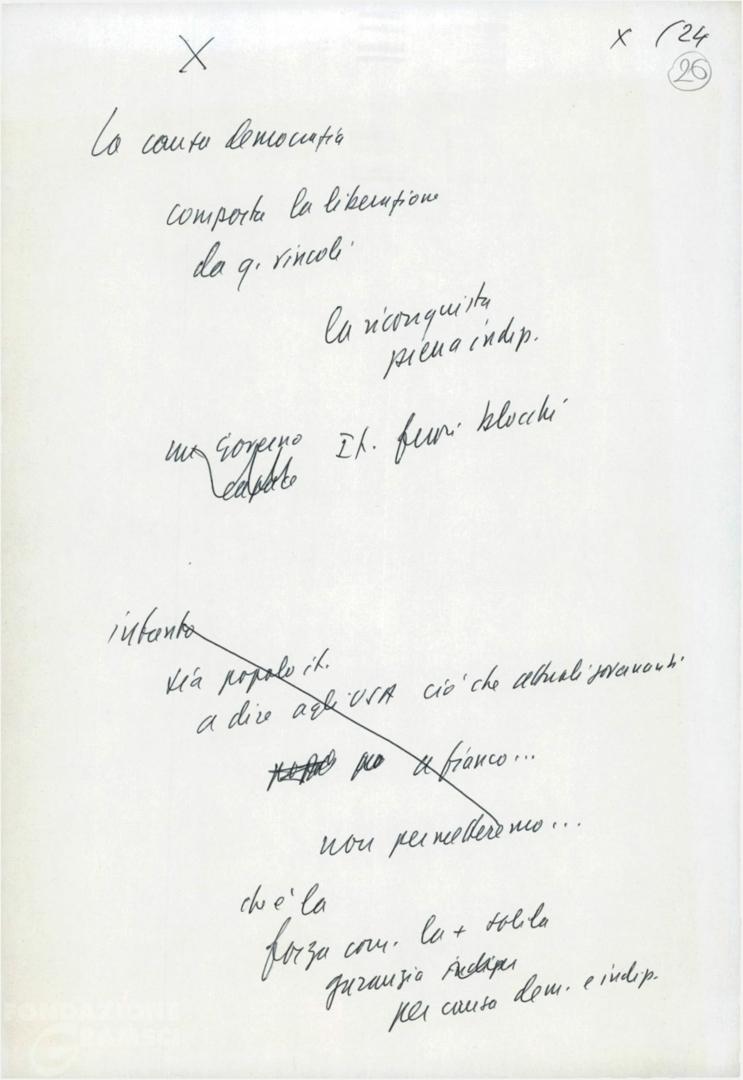 X
X /24
26
La causa democratia
comporta la liberazione
da q. vincoli
la riconquista
piena indip.
un Governo It. fuori blocchi
capace
intanto
sia popolo it.
a dire agli USA ciò che attuali governanti
no a fianco...
non permetteremo...
ch'è la
forza com. la + solida
garanzia indip
per causa dem. e indip.
FONDAZIONE
GRAMSCI